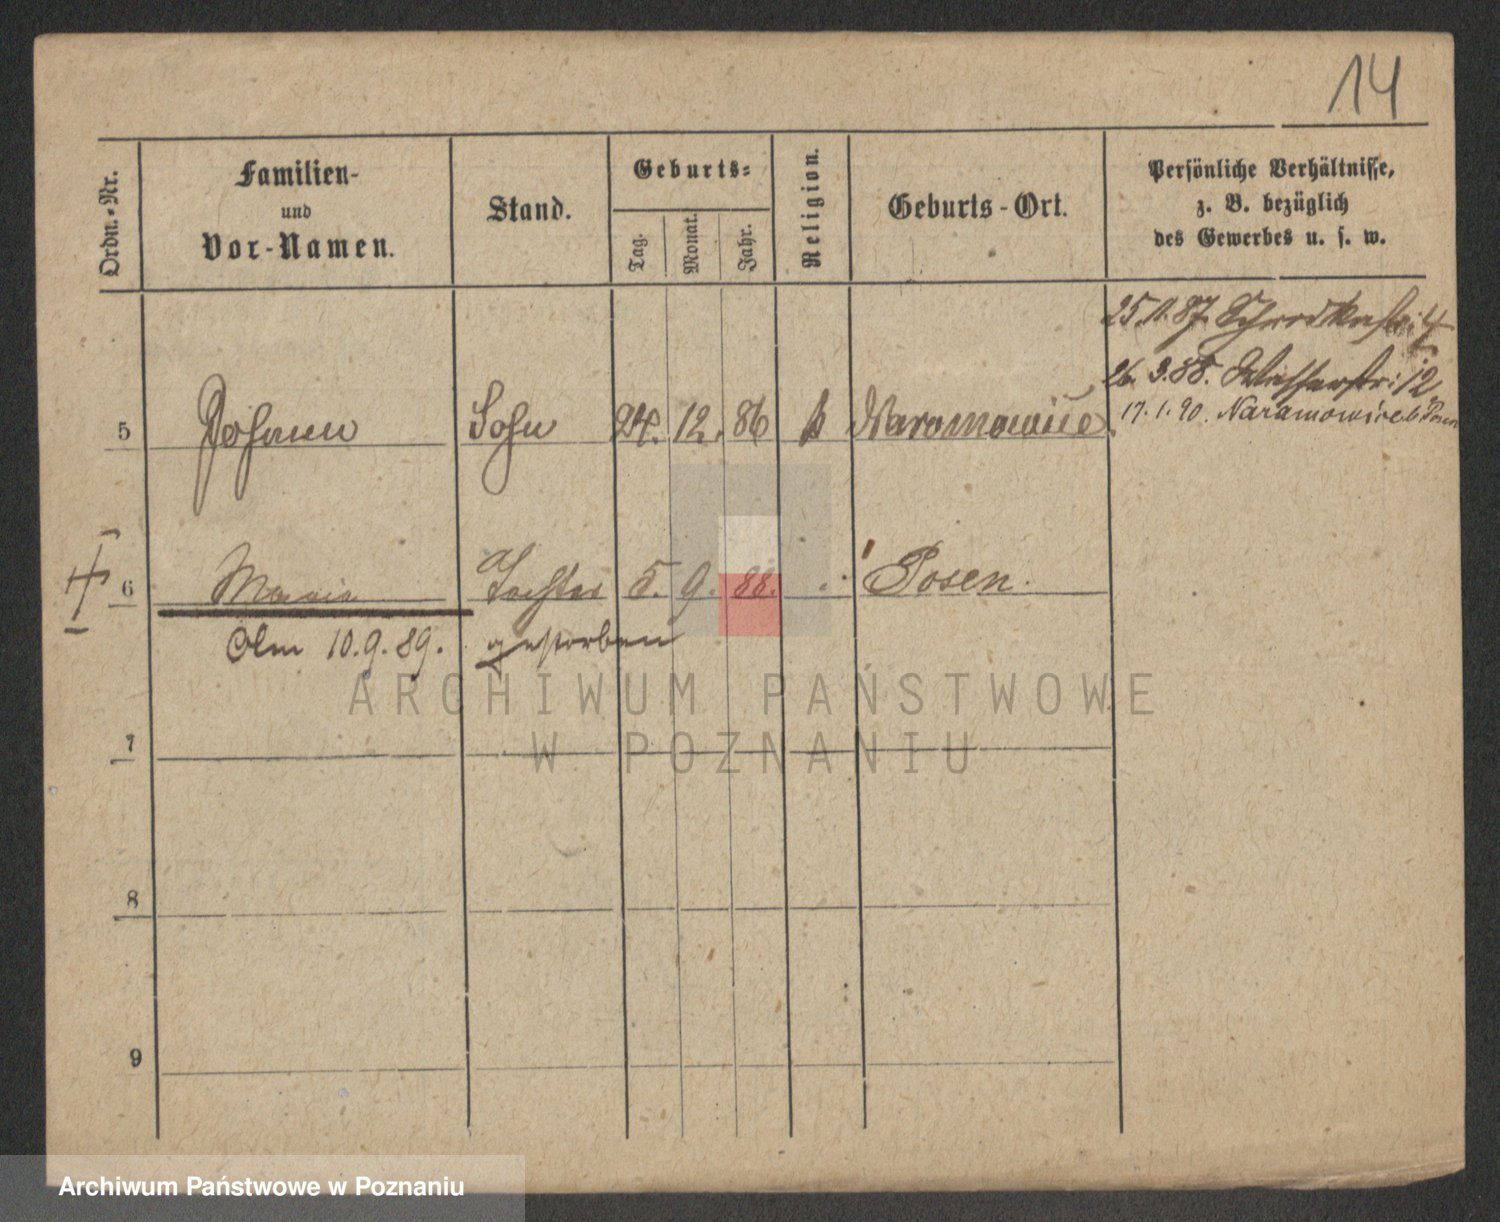 14
Ordn.-Nr.
Familien-
und
Vor-Namen.
Stand.
Geburts-
Tag.
Monat.
Jahr.
Religion.
Geburts-Ort.
Persönliche Verhältnisse,
z. B. bezüglich
des Gewerbes u. s. w.
25.11.87. Schrodkastr: 4
26. 3. 88. Wallstr: 12
17. 1. 90. Naramowice b. Posen
5 Johann Sohn 24. 12. 86 k Naramowice
6 Marie Tochter 5. 9. 88. Posen.
Am 10.9.89. gestorben
7
8
9
ARCHIWUM PAŃSTWOWE
W POZNANIU
Archiwum Państwowe w Poznaniu